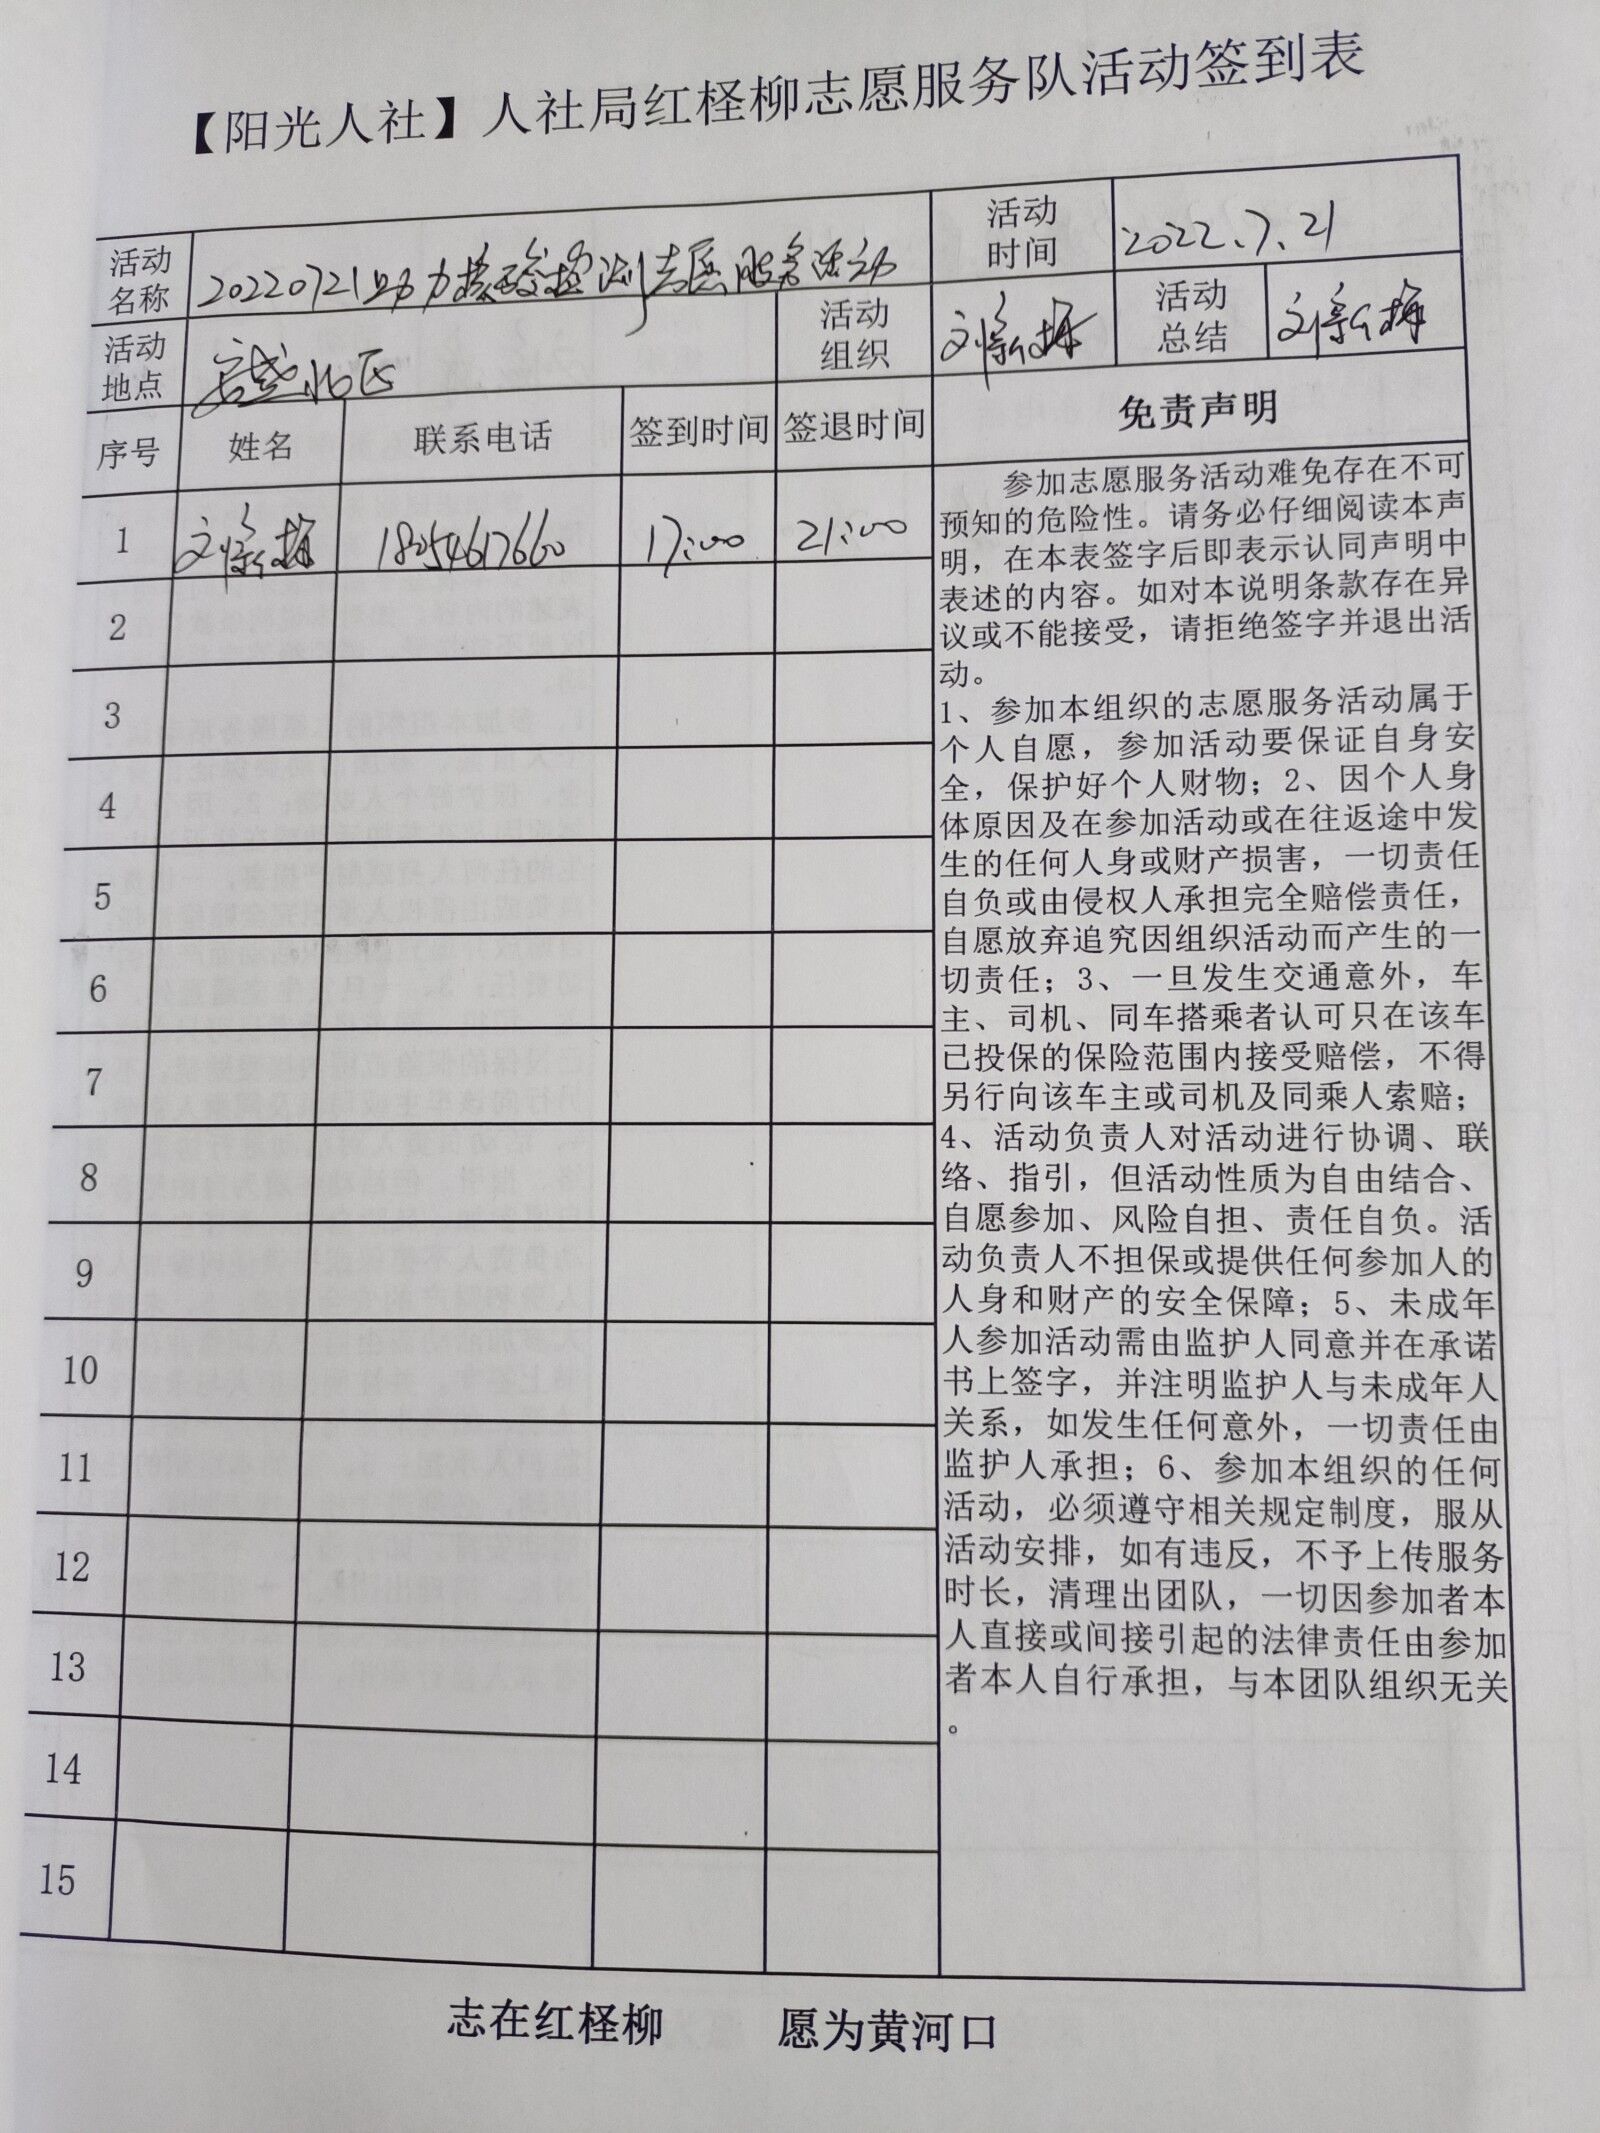 【阳光人社】人社局红柽柳志愿服务队活动签到表
活动名称 20220721助力核酸检测志愿服务活动 活动时间 2022.7.21
活动地点 安盛北区 活动组织 活动总结
序号 姓名 联系电话 签到时间 签退时间 免责声明
1 18254617660 17:00 21:00
2
3
4
5
6
7
8
9
10
11
12
13
14
15
参加志愿服务活动难免存在不可
预知的危险性。请务必仔细阅读本声
明，在本表签字后即表示认同声明中
表述的内容。如对本说明条款存在异
议或不能接受，请拒绝签字并退出活
动。
1、参加本组织的志愿服务活动属于
个人自愿，参加活动要保证自身安
全，保护好个人财物；2、因个人身
体原因及在参加活动或在往返途中发
生的任何人身或财产损害，一切责任
自负或由侵权人承担完全赔偿责任，
自愿放弃追究因组织活动而产生的一
切责任；3、一旦发生交通意外，车
主、司机、同车搭乘者认可只在该车
已投保的保险范围内接受赔偿，不得
另行向该车主或司机及同乘人索赔；
4、活动负责人对活动进行协调、联
络、指引，但活动性质为自由结合、
自愿参加、风险自担、责任自负。活
动负责人不担保或提供任何参加人的
人身和财产的安全保障；5、未成年
人参加活动需由监护人同意并在承诺
书上签字，并注明监护人与未成年人
关系，如发生任何意外，一切责任由
监护人承担；6、参加本组织的任何
活动，必须遵守相关规定制度，服从
活动安排，如有违反，不予上传服务
时长，清理出团队，一切因参加者本
人直接或间接引起的法律责任由参加
者本人自行承担，与本团队组织无关
。
志在红柽柳 愿为黄河口